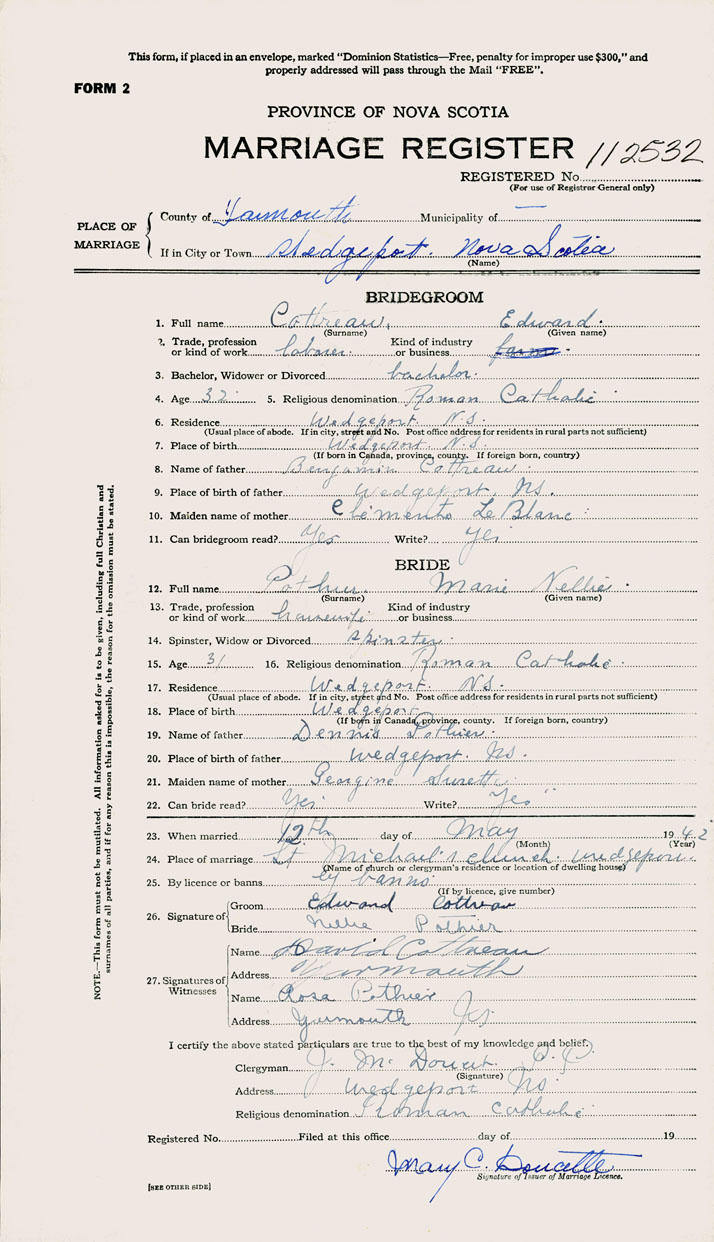 This form, if placed in an envelope, marked "Dominion Statistics—Free, penalty for improper use $300," and
properly addressed will pass through the Mail "FREE".
FORM 2
PROVINCE OF NOVA SCOTIA
MARRIAGE REGISTER 112532
REGISTERED No
(For use of Registrar-General only)
PLACE OF MARRIAGE
County of Yarmouth Municipality of —
If in City or Town Wedgeport. Nova Scotia
(Name)
BRIDEGROOM
1. Full name Cottreau, Edward.
(Surname) (Given name)
2. Trade, profession or kind of work laborer. Kind of industry or business
3. Bachelor, Widower or Divorced bachelor.
4. Age 32 5. Religious denomination Roman Catholic
6. Residence Wedgeport. N.S.
(Usual place of abode. If in city, street and No. Post office address for residents in rural parts not sufficient)
7. Place of birth Wedgeport. N.S.
(If born in Canada, province, county. If foreign born, country)
8. Name of father Benjamin Cottreau.
9. Place of birth of father Wedgeport. Ns.
10. Maiden name of mother Elémente LeBlanc
11. Can bridegroom read? Yes Write? Yes
BRIDE
12. Full name Pothier. Marie Nellie.
(Surname) (Given name)
13. Trade, profession or kind of work housewife Kind of industry or business
14. Spinster, Widow or Divorced spinster.
15. Age 31 16. Religious denomination Roman Catholic.
17. Residence Wedgeport. Ns.
(Usual place of abode. If in city, street and No. Post office address for residents in rural parts not sufficient)
18. Place of birth Wedgeport
(If born in Canada, province, county. If foreign born, country)
19. Name of father Dennis Pothier.
20. Place of birth of father Wedgeport. Ns.
21. Maiden name of mother Georgine Surett.
22. Can bride read? Yes. Write? "Yes"
23. When married 12th day of May 1942
(Month) (Year)
24. Place of marriage St Michael's church. wedgeport.
(Name of church or clergyman's residence or location of dwelling house)
25. By licence or banns by banns
(If by licence, give number)
26. Signature of
Groom Edward Cottreau
Bride Nellie Pothier
27. Signatures of Witnesses
Name David Cottreau
Address Yarmouth
Name Rosa Pothier
Address Yarmouth Ns
I certify the above stated particulars are true to the best of my knowledge and belief.
Clergyman J. Mc Doucet
(Signature)
Address Wedgeport Ns
Religious denomination Roman Catholic
Registered No. Filed at this office day of 19
Mary C. Doucette
Signature of Issuer of Marriage Licence.
[SEE OTHER SIDE]
NOTE.—This form must not be mutilated. All information asked for is to be given, including full Christian and
surnames of all parties, and if for any reason this is impossible, the reason for the omission must be stated.